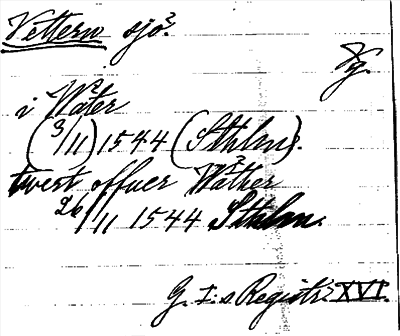 Vettern sjö.
Vg.
i Wäter
(3/11) 1544 (Sthlm).
twert offuer Wäther
26/11 1544 Sthlm.
G. I:s Registr. XVI.